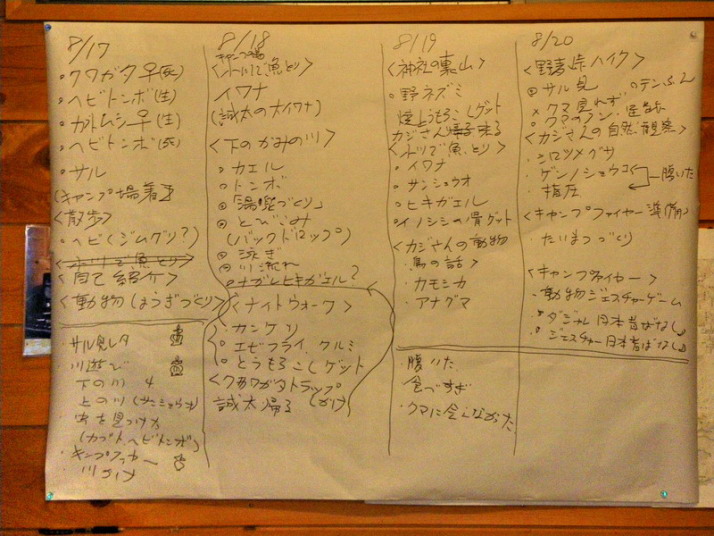 8/17
・クワガタ♀(死)
・ヘビトンボ(生)
・カブトムシ♀(生)
・ヘビトンボ(死)
・サル
(キャンプ場着)
<散歩>
・ヘビ(ジムグリ?)
<小川で魚とり>
<自己紹介>
<動物しょうぎづくり>
・サル見レタ
・川遊び
下の川 4
上の川
虫を見つけた
(カブト、ヘビトンボ)
・キャンプファイヤー
8/18
キャンプ場
<小川で魚とり>
イワナ
(誠太の大イワナ)
<下のかみの川>
・カエル
・トンボ
・「温泉づくり」
・とびこみ
(バックドロップ)
・泳ぎ
・川流れ
・ナガレヒキガエル?
<ナイトウォーク>
・カンケリ
・エビフライ、クルミ
・とうもろこしゲット
<クワガタトラップ
しかけ>
誠太帰る
8/19
<神社の裏山>
・野ネズミ
焼とうもろこしゲット
カジさん 来る
<小川で魚とり>
・イワナ
・サンショウオ
・ヒキガエル
・イノシシの骨ゲット
<カジさんの動物
・鳥の話>
・カモシカ
・アナグマ
・腹いた
食べすぎ
・クマに会えなかった
8/20
<野麦峠ハイク>
・サル見 ・テンふん
×クマ見れず
・クマのフン
<カジさんの自然観察>
・シロツメグサ
・ゲンノショウコ 腹いた
<キャンプファイヤー準備>
・たいまつづくり
<キャンプファイヤー>
・動物ジェスチャーゲーム
・ダジャレ日本昔ばなし
・ジェスチャー日本昔ばなし